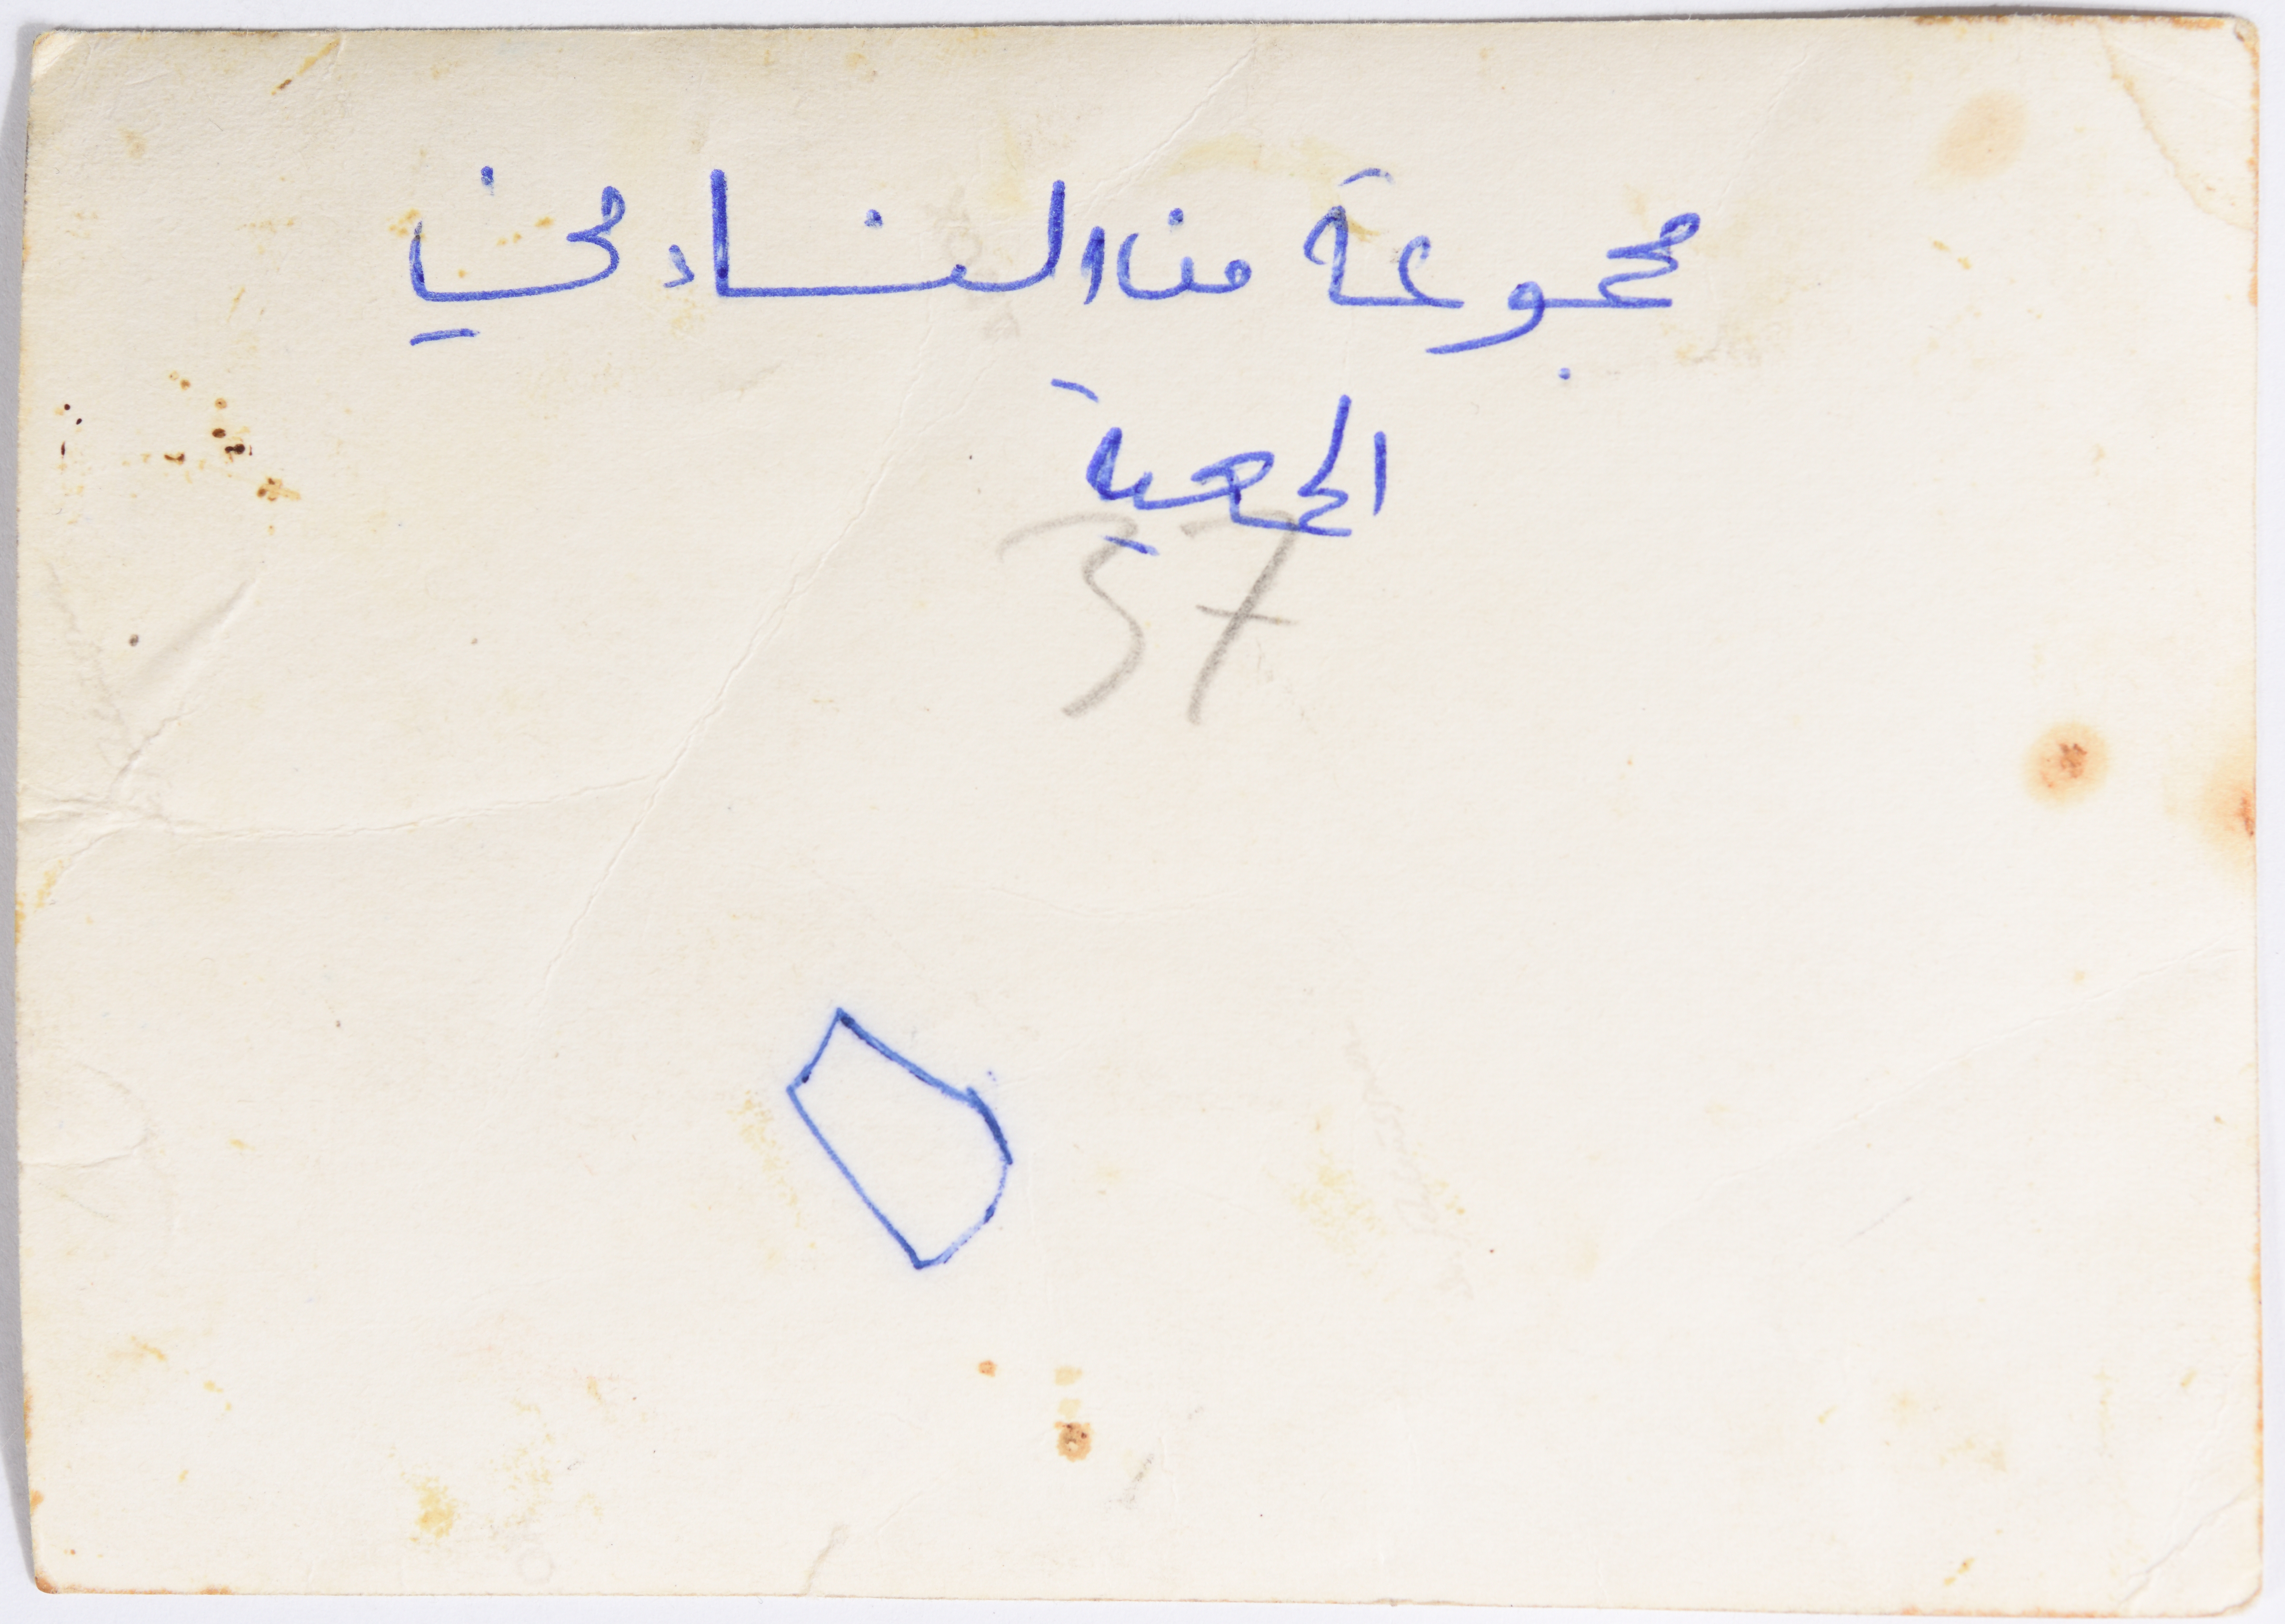 مجموعة من النساء في
الجمعية
37